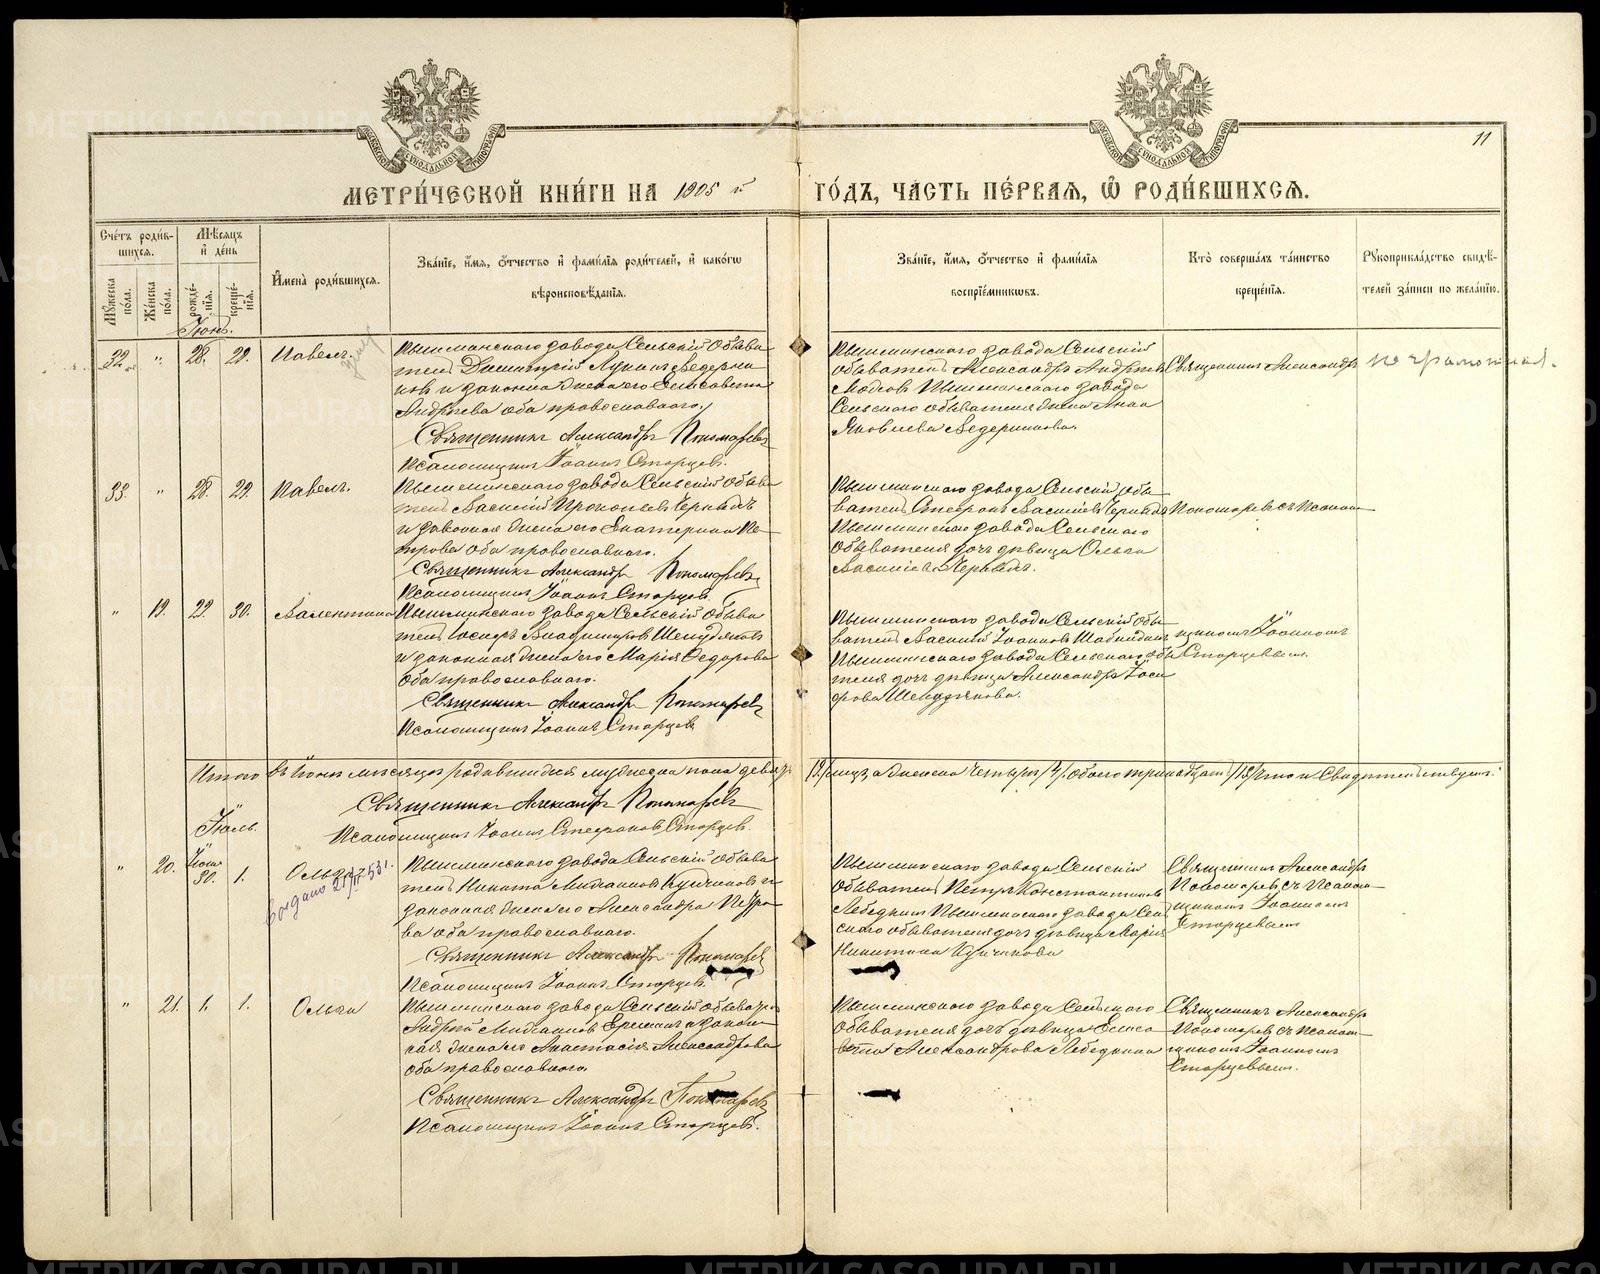 МОСКОВСКОЙ СѴНОДАЛЬНОЙ ТИПОГРАФІИ
МОСКОВСКОЙ СѴНОДАЛЬНОЙ ТИПОГРАФІИ
11
МЕТРИ́ЧЕСКОЙ КНИ́ГИ НА 1905 й ГО́ДЪ, ЧА́СТЬ ПЕ́РВАЯ, Ѿ РОДИ́ВШИХСЯ.
Сче́тъ роди́в-
шихся.
Му́жеска по́ла.
Же́нска по́ла.
Мѣ́сяцъ и де́нь
рожде́-нія.
креще́-нія.
Имена̀ роди́вшихся.
Зва́ніе, и́мя, о́тчество и фами́лія роди́телей, и како́гѡ
вѣроисповѣ́данія.
Зва́ніе, и́мя, о́тчество и фами́лія
воспріе́мникѡвъ.
Кто̀ соверша́лъ та́инство
креще́нія.
Рукоприкла́дство свидѣ́-
телей за́писи по жела́нію.
Іюнь.
32 " 28. 29. Павелъ.
Пышминскаго завода Сельскій Обыва
тель Димитрій Лукинъ Ведерни
ковъ и законная жена его Елисавета
Андреева оба православнаго.
Священникъ Александръ Пономаревъ
Псаломщикъ Іоаннъ Старцевъ.
Пышминскаго завода Сельскій
обыватель Александръ Андреевъ
Пышминскаго завода
Сельскаго обывателя жена Анна
Яковлева Ведерникова.
Священникъ Александръ
неграмотная.
33. " 28. 29. Павелъ.
Пышминскаго завода Сельскій Обыва
тель Василій Прокопьевъ Черныхъ
и законная жена его Екатерина Пе-
трова оба православнаго.
Священникъ Александръ Пономаревъ
Псаломщикъ Іоаннъ Старцевъ.
Пышминскаго завода Сельскій Обы-
ватель Стефанъ Васильевъ Черныхъ
Пышминскаго завода Сельскаго
Обывателя дочь девица Ольга
Васильева Черныхъ.
Пономаревъ съ Псалом-
" 19. 29. 30. Валентина
Пышминскаго завода Сельскій Обыва
тель Іосифъ Владимировъ Шелудяковъ
и законная жена его Марія Федорова
Оба православнаго.
Священникъ Александръ Пономаревъ
Псаломщикъ Іоаннъ Старцевъ
Пышминскаго завода Сельскій Обы-
ватель Василій Іоанновъ
Пышминскаго завода Сельскаго обы
теля дочь девица Александра
Шелудякова.
щикомъ Іоанномъ
Старцевымъ.
Итого въ Іюнѣ месяце родившихся мужеска пола девять
Священникъ Александръ Пономаревъ
Псаломщикъ Іоаннъ Стефановъ Старцевъ.
Іюль.
" 20. Іюня 30. 1. Ольга
Пышминскаго завода Сельскій Обыва
тель Никита Михайловъ Кузчиковъ и
законная жена его Александра Петро
ва оба православнаго.
Священникъ Александръ Пономаревъ
Псаломщикъ Іоаннъ Старцевъ.
Пышминскаго завода Сельскій
Обыватель Петръ Константиновъ
Лебедкинъ Пышминскаго завода Сель
скаго обывателя дочь девица Марія
Никитина
Священникъ Александръ
Пономаревъ съ Псалом-
щикомъ Іоанномъ
Старцевымъ
" 21. 1. 1. Ольга
Пышминскаго завода Сельскій обыватель
Андрей Михайловъ и закон-
ная жена его Анастасія Александрова
оба православнаго.
Священникъ Александръ Пономаревъ
Псаломщикъ Іоаннъ Старцевъ.
Пышминскаго завода Сельскаго
Обывателя дочь девица Елиса
вета Александрова Лебедкина
Священникъ Александръ
Пономаревъ съ Псалом-
щикомъ Іоанномъ
Старцевымъ.